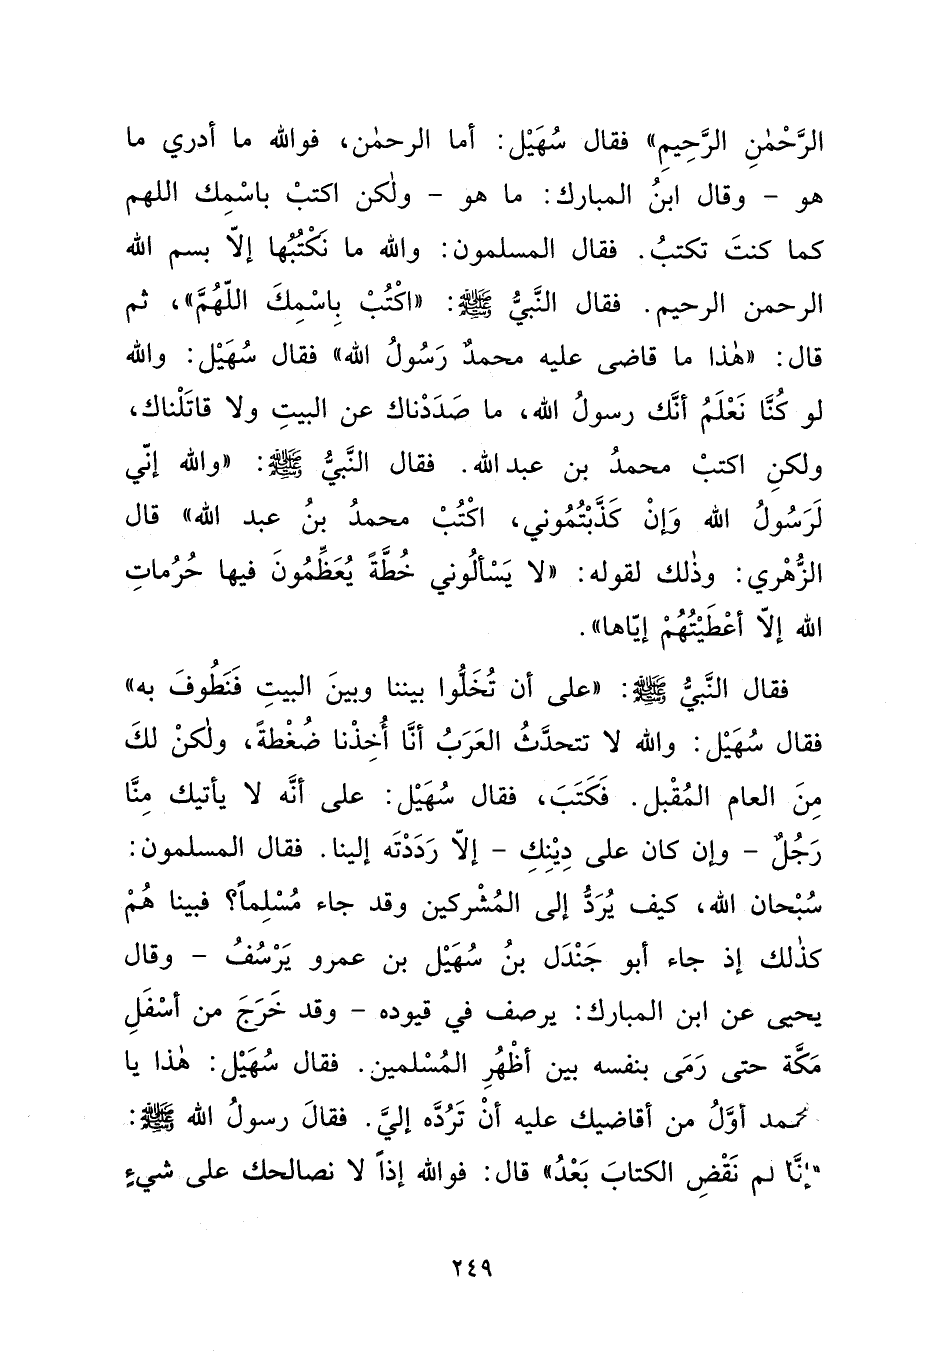 الرَّحْمٰنِ الرَّحِيمِ» فقال سُهَيْل: أما الرحمٰن، فوالله ما أدري ما
هو - وقال ابنُ المبارك: ما هو - ولٰكن اكتبْ باسْمِك اللهم
كما كنتَ تكتبُ. فقال المسلمون: والله ما نَكْتُبُها إلاّ بسم الله
الرحمن الرحيم. فقال النَّبيُّ ﷺ: «اكْتُبْ بِاسْمِكَ اللّهُمَّ»، ثم
قال: «هٰذا ما قاضى عليه محمدٌ رَسُولُ الله» فقال سُهَيْل: والله
لو كُنَّا نَعْلَمُ أنَّك رسولُ الله، ما صَدَدْناك عن البيتِ ولا قاتَلْناك،
ولكنِ اكتبْ محمدُ بن عبدالله. فقال النَّبيُّ ﷺ: «والله إنّي
لَرَسُولُ الله وَإنْ كَذَّبْتُمُوني، اكْتُبْ محمدُ بنُ عبد الله» قال
الزُّهْري: وذٰلك لقوله: «لا يَسْألُوني خُطَّةً يُعَظِّمُونَ فيها حُرُماتِ
الله إلاّ أعْطَيْتُهُمْ إيّاها».
فقال النَّبيُّ ﷺ: «على أن تُخَلُّوا بيننا وبينَ البيتِ فَنَطُوفَ به»
فقال سُهَيْل: والله لا تتحدَّثُ العَرَبُ أنَّا أُخِذْنا ضُغْطةً، ولٰكنْ لكَ
مِنَ العام المُقْبل. فَكَتَبَ، فقال سُهَيْل: على أنَّه لا يأتيك مِنَّا
رَجُلٌ - وإن كان على دِيْنِكِ - إلاّ رَدَدْتَه إلينا. فقال المسلمون:
سُبْحان الله، كيف يُرَدُّ إلى المُشْركين وقد جاء مُسْلِماً؟ فبينا هُمْ
كذٰلك إذ جاء أبو جَنْدَل بنُ سُهَيْل بن عمرو يَرْسُفُ - وقال
يحيى عن ابن المبارك: يرصف في قيوده - وقد خَرَجَ من أسْفَلِ
مَكَّة حتى رَمَى بنفسه بين أظْهُرِ المُسْلمين. فقال سُهَيْل: هٰذا يا
محمد أوَّلُ من أقاضيك عليه أنْ تَرُدَّه إليَّ. فقالَ رسولُ الله ﷺ:
«إنَّا لم نَقْضِ الكتابَ بَعْدُ» قال: فوالله إذاً لا نصالحك على شيءٍ
٢٤٩